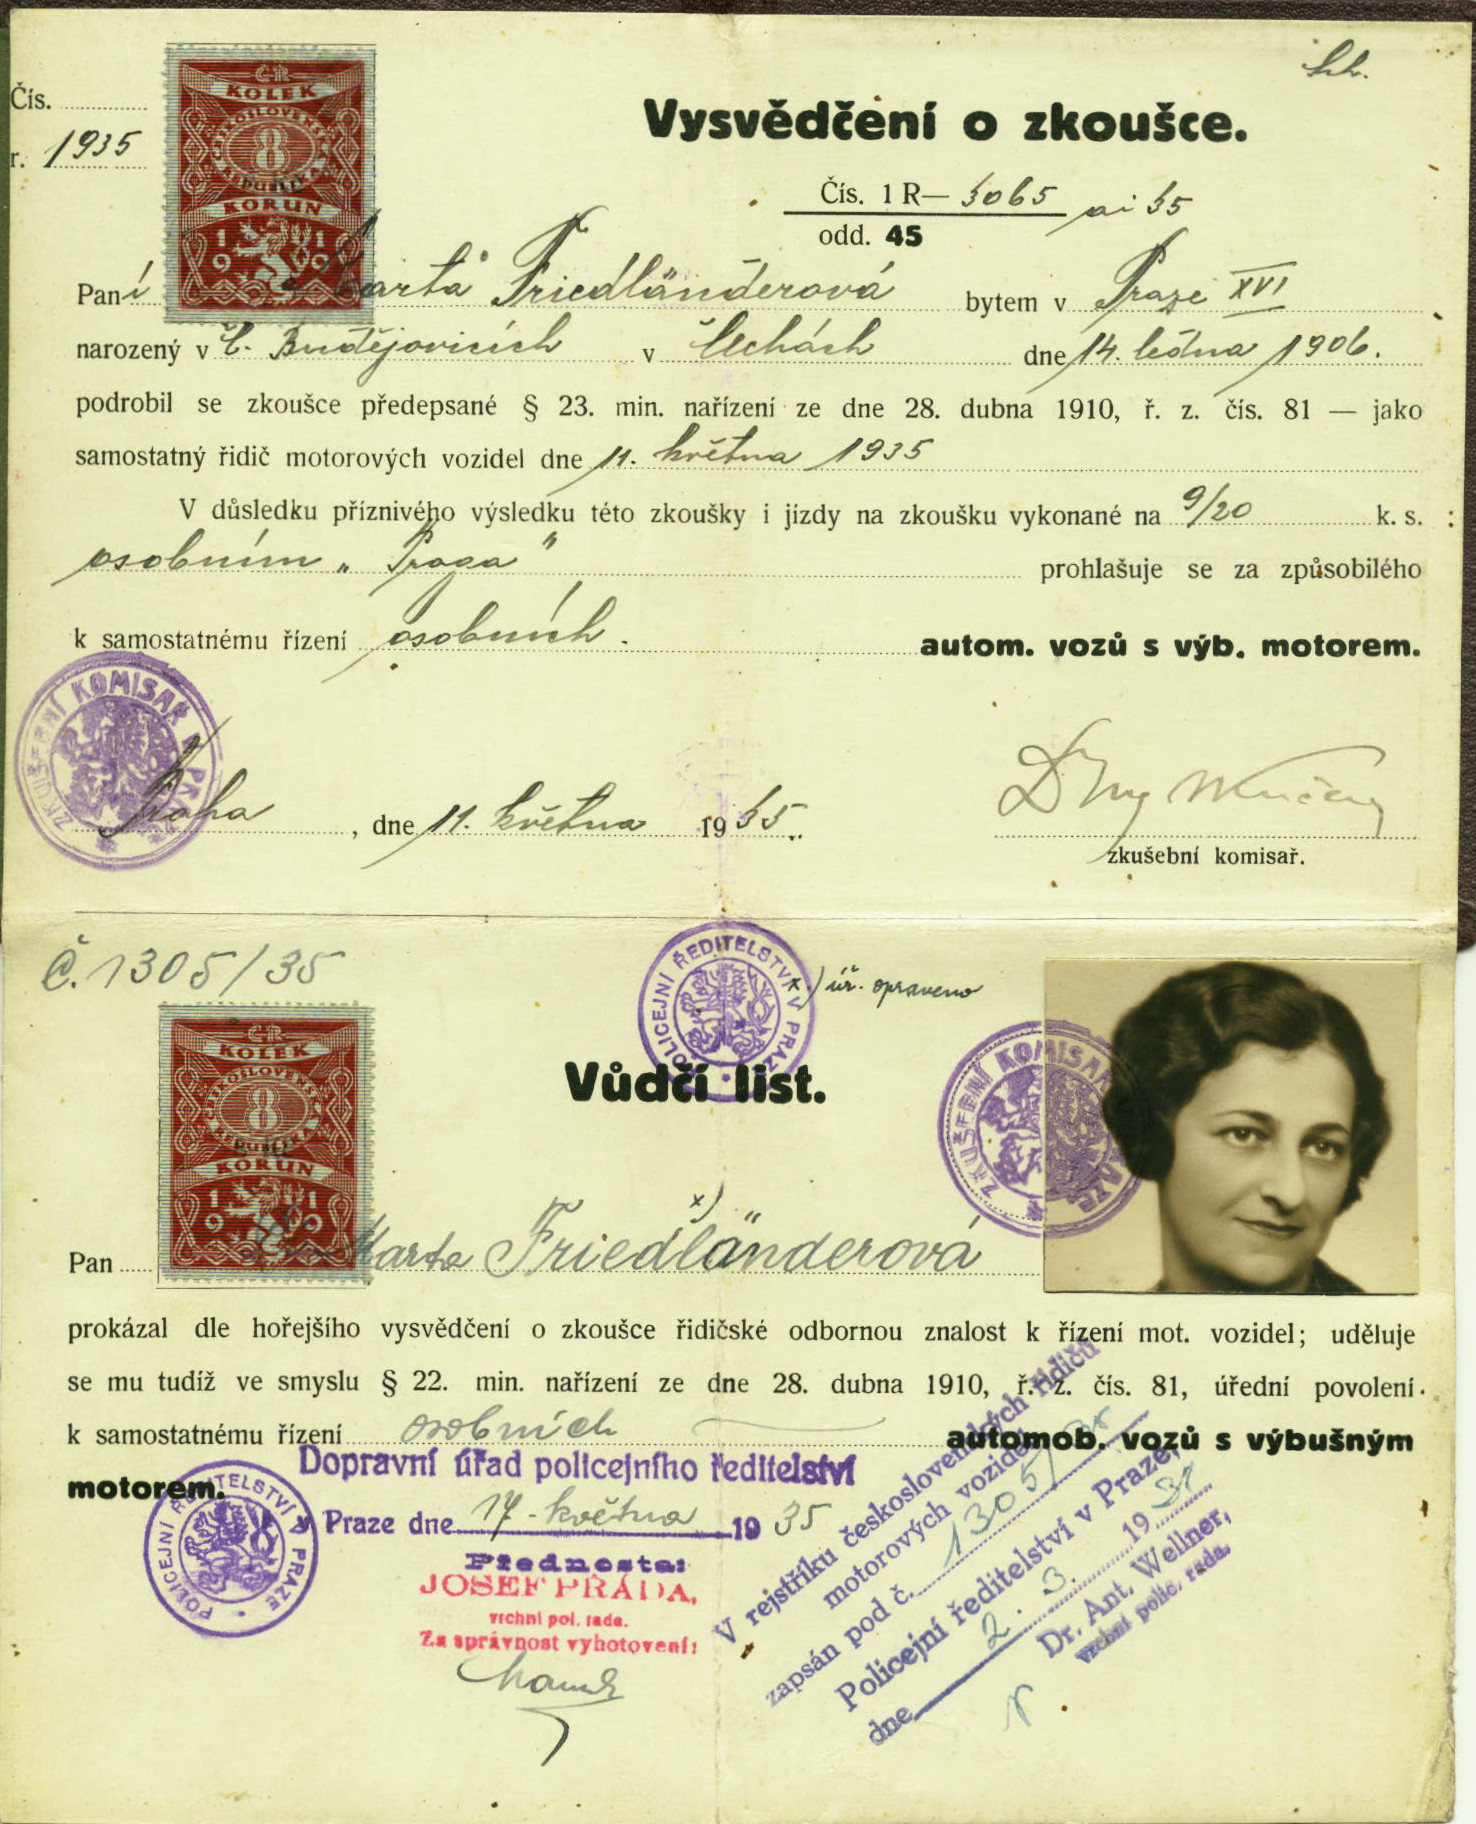 Čís.
r. 1935
ČR
KOLEK
ČESKOSLOVENSKÁ
8
REPUBLIKA
KORUN
1919
Vysvědčení o zkoušce.
Čís. 1 R— 3065 ai 35
odd. 45
Paní Marta Friedländerová bytem v Praze XVI
narozený v Č. Budějovicích v Čechách dne 14. ledna 1906.
podrobil se zkoušce předepsané § 23. min. nařízení ze dne 28. dubna 1910, ř. z. čís. 81 — jako
samostatný řidič motorových vozidel dne 11. května 1935
V důsledku příznivého výsledku této zkoušky i jízdy na zkoušku vykonané na 9/20 k. s.
osobním „Praga" prohlašuje se za způsobilého
k samostatnému řízení osobních. autom. vozů s výb. motorem.
ZKUŠEBNÍ KOMISAŘ V PRAZE
Praha, dne 11. května 1935.
zkušební komisař.
Č. 1305/35
POLICEJNÍ ŘEDITELSTVÍ V PRAZE
x) úř. opraveno
ČR
KOLEK
ČESKOSLOVENSKÁ
8
REPUBLIKA
KORUN
1919
Vůdčí list.
ZKUŠEBNÍ KOMISAŘ V PRAZE
x)
Pan Marta Friedländerová
prokázal dle hořejšího vysvědčení o zkoušce řidičské odbornou znalost k řízení mot. vozidel; uděluje
se mu tudíž ve smyslu § 22. min. nařízení ze dne 28. dubna 1910, ř. z. čís. 81, úřední povolení
k samostatnému řízení osobních automob. vozů s výbušným
motorem.
POLICEJNÍ ŘEDITELSTVÍ V PRAZE
Dopravní úřad policejního ředitelství
v Praze dne 17. května 1935
Přednosta:
JOSEF PRÁDA,
vrchní pol. rada.
Za správnost vyhotovení:
V rejstříku československých řidičů
motorových vozidel
zapsán pod č. 1305/35
Policejní ředitelství v Praze,
dne 2. 3. 1937
Dr. Ant. Wellner,
vrchní polic. rada.